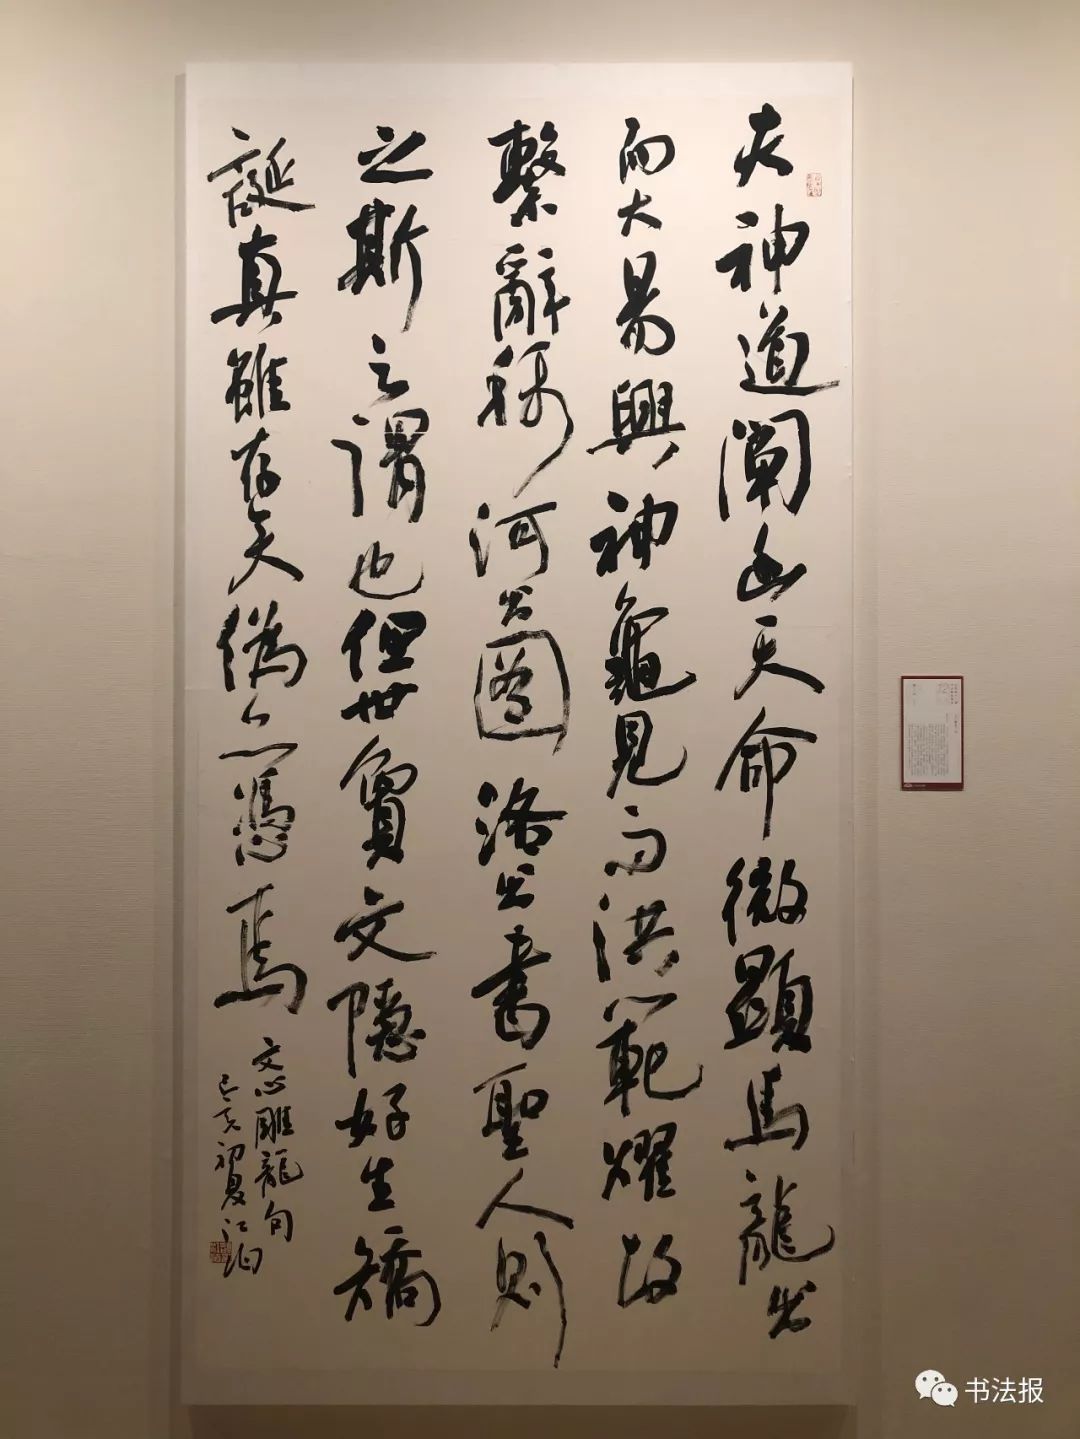 夫神道闡幽天命微顯馬龍出
而大易興神龜見而洪範耀故
繫辭稱河出圖洛出書聖人則
之斯之謂也但世夐文隱好生矯
誕真雖存矣偽亦憑焉
文心雕龍句
己亥初夏江泊
书法报